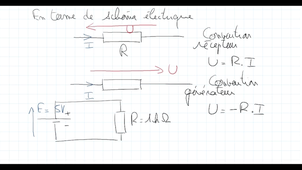 En terme de schéma électrique
U
I
R
Convention
récepteur
U = R.I
U
I
Convention
générateur
U = -R.I
E = 5V
+
-
R = 1kΩ